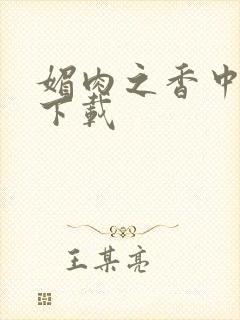 媚肉之香中
下載
王某亮